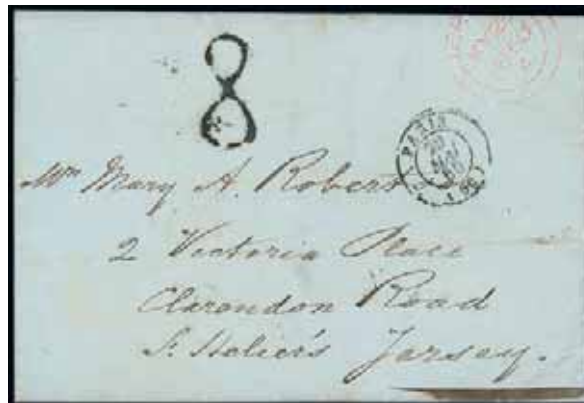 8
PARIS
Mrs Mary A. Robertson
2 Victoria Place
Clarendon Road
St Helier's Jersey.